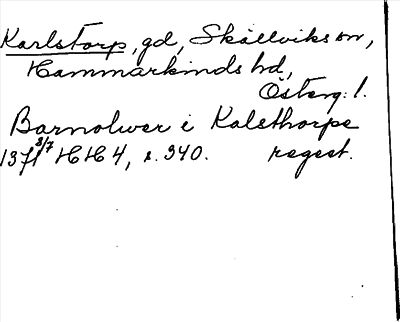 Karlstorp, gd, Skällviks sn,
Hammarkinds hd,
Österg. l.
Barnolwer i Kalsthorpe
1371 3/7 HH 4, s. 340. regest.